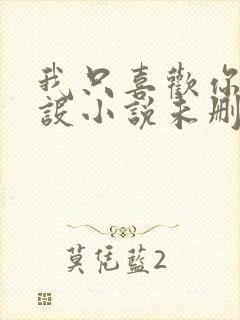 我只喜歡你
設小說未刪
莫凭藍2